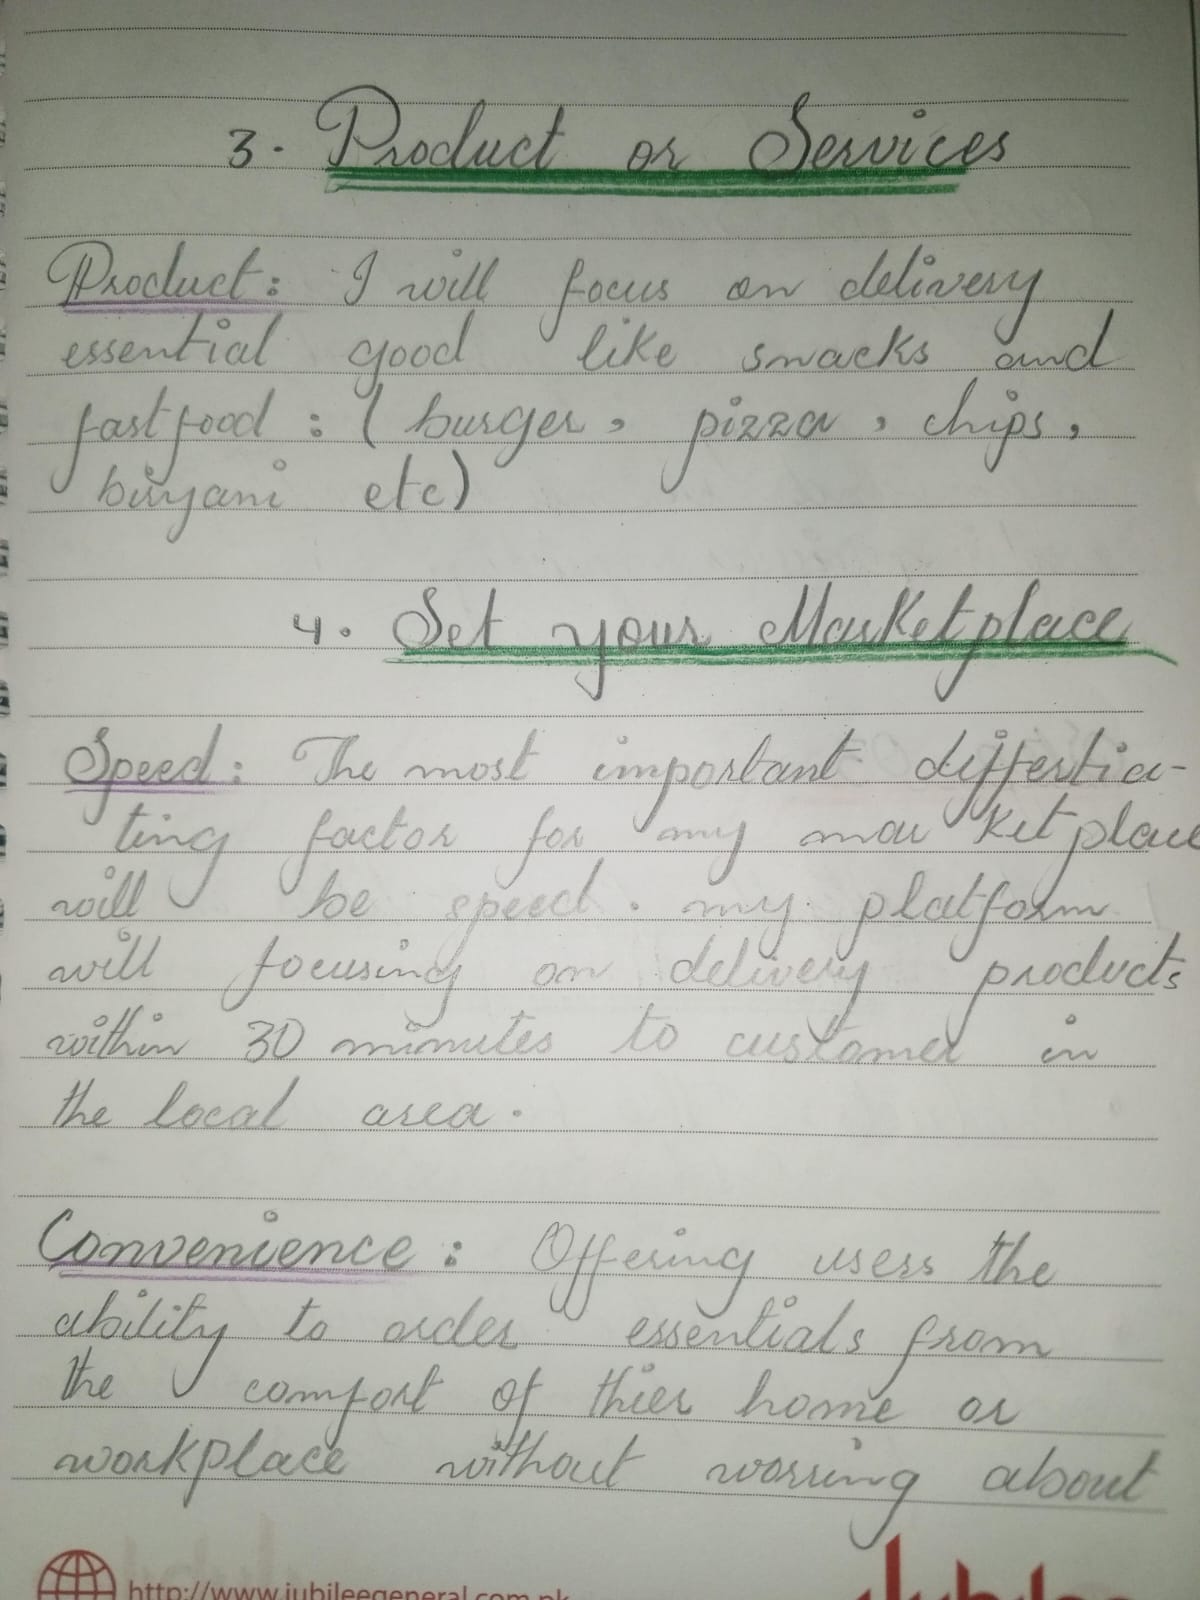 3. Product or Services
Product: I will focus on delivery
essential good like snacks and
fastfood : ( burger, pizza, chips,
biryani etc)
4. Set your Marketplace
Speed: The most important differtia-
ting factor for my marketplace
will be speed. my platform
will focusing on delivery products
within 30 minutes to customer in
the local area.
Convenience: Offering users the
ability to order essentials from
the comfort of thier home or
workplace without worring about
http://www.jubileegeneral.com.pk